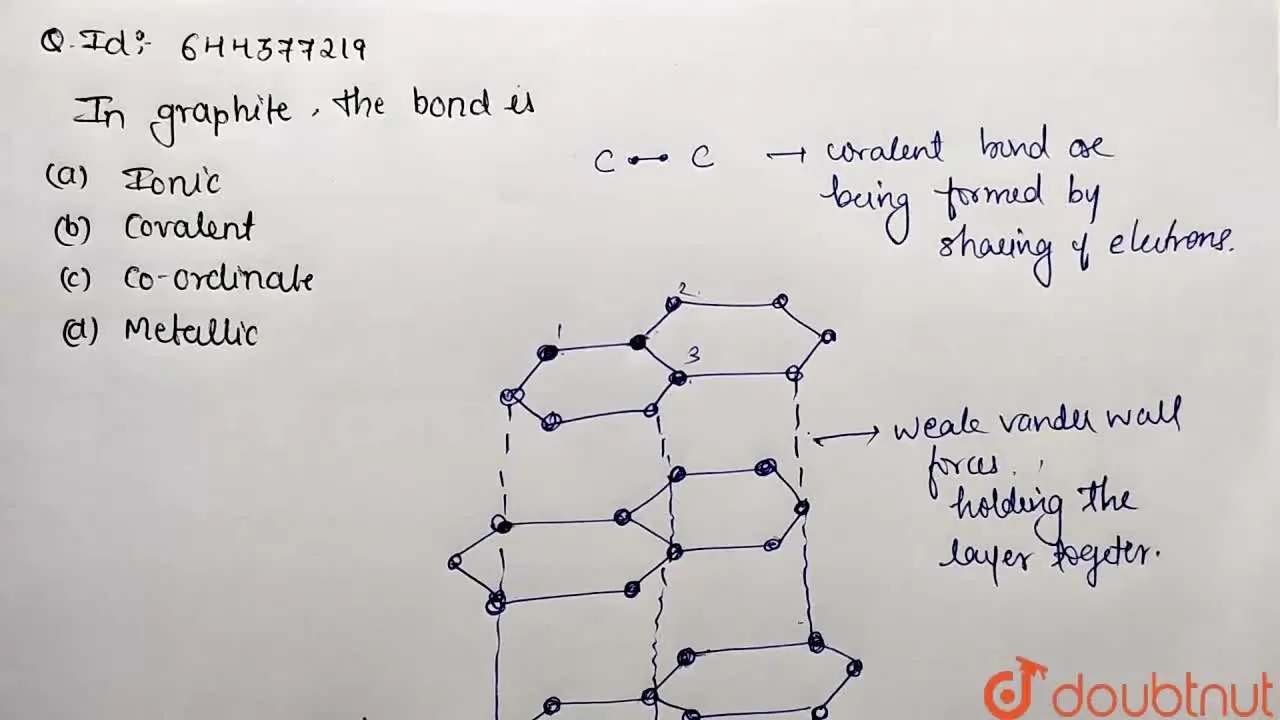 Q.Id:- 644377219
In graphite, the bond is
(a) Ionic
(b) Covalent
(c) Co-ordinate
(d) Metallic
C C → covalent bond are
being formed by
sharing of electrons.
1
2
3
→ weak vander wall
forces.
holding the
layer togeter.
doubtnut